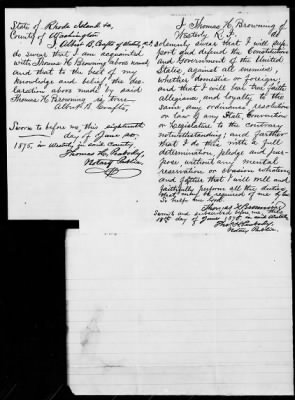 State of Rhode Island ss,
County of Washington
I Albert B. Crafts of
do swear that I am acquainted
with Thomas H. Browning above named,
and that to the best of my
knowledge and belief the dec-
laration above made by said
Thomas H. Browning is true
Albert B. Crafts,
Sworn to before me, this
day of June AD.
1875, in said County,
Thomas H. Peabody,
Notary Public,
I Thomas H. Browning of
Westerly R.I. do
solemnly swear that I will sup-
port and defend the Constitution
and Government of the United
States, against all enemies,
whether domestic or foreign,
and that I will bear true faith
allegiance and loyalty to the
same, any ordinance, resolution
or law of any State Convention
or Legislature to the contrary
notwithstanding; and further
that I do this with a full
determination, pledge and pur-
pose without any mental
reservation or evasion whatever,
and further that I will well and
faithfully perform all the duties
that may be required of me by law
So help me God
Thomas H Browning
Sworn and subscribed before me, this
day of June 1875
Thos H Peabody,
Notary Public.